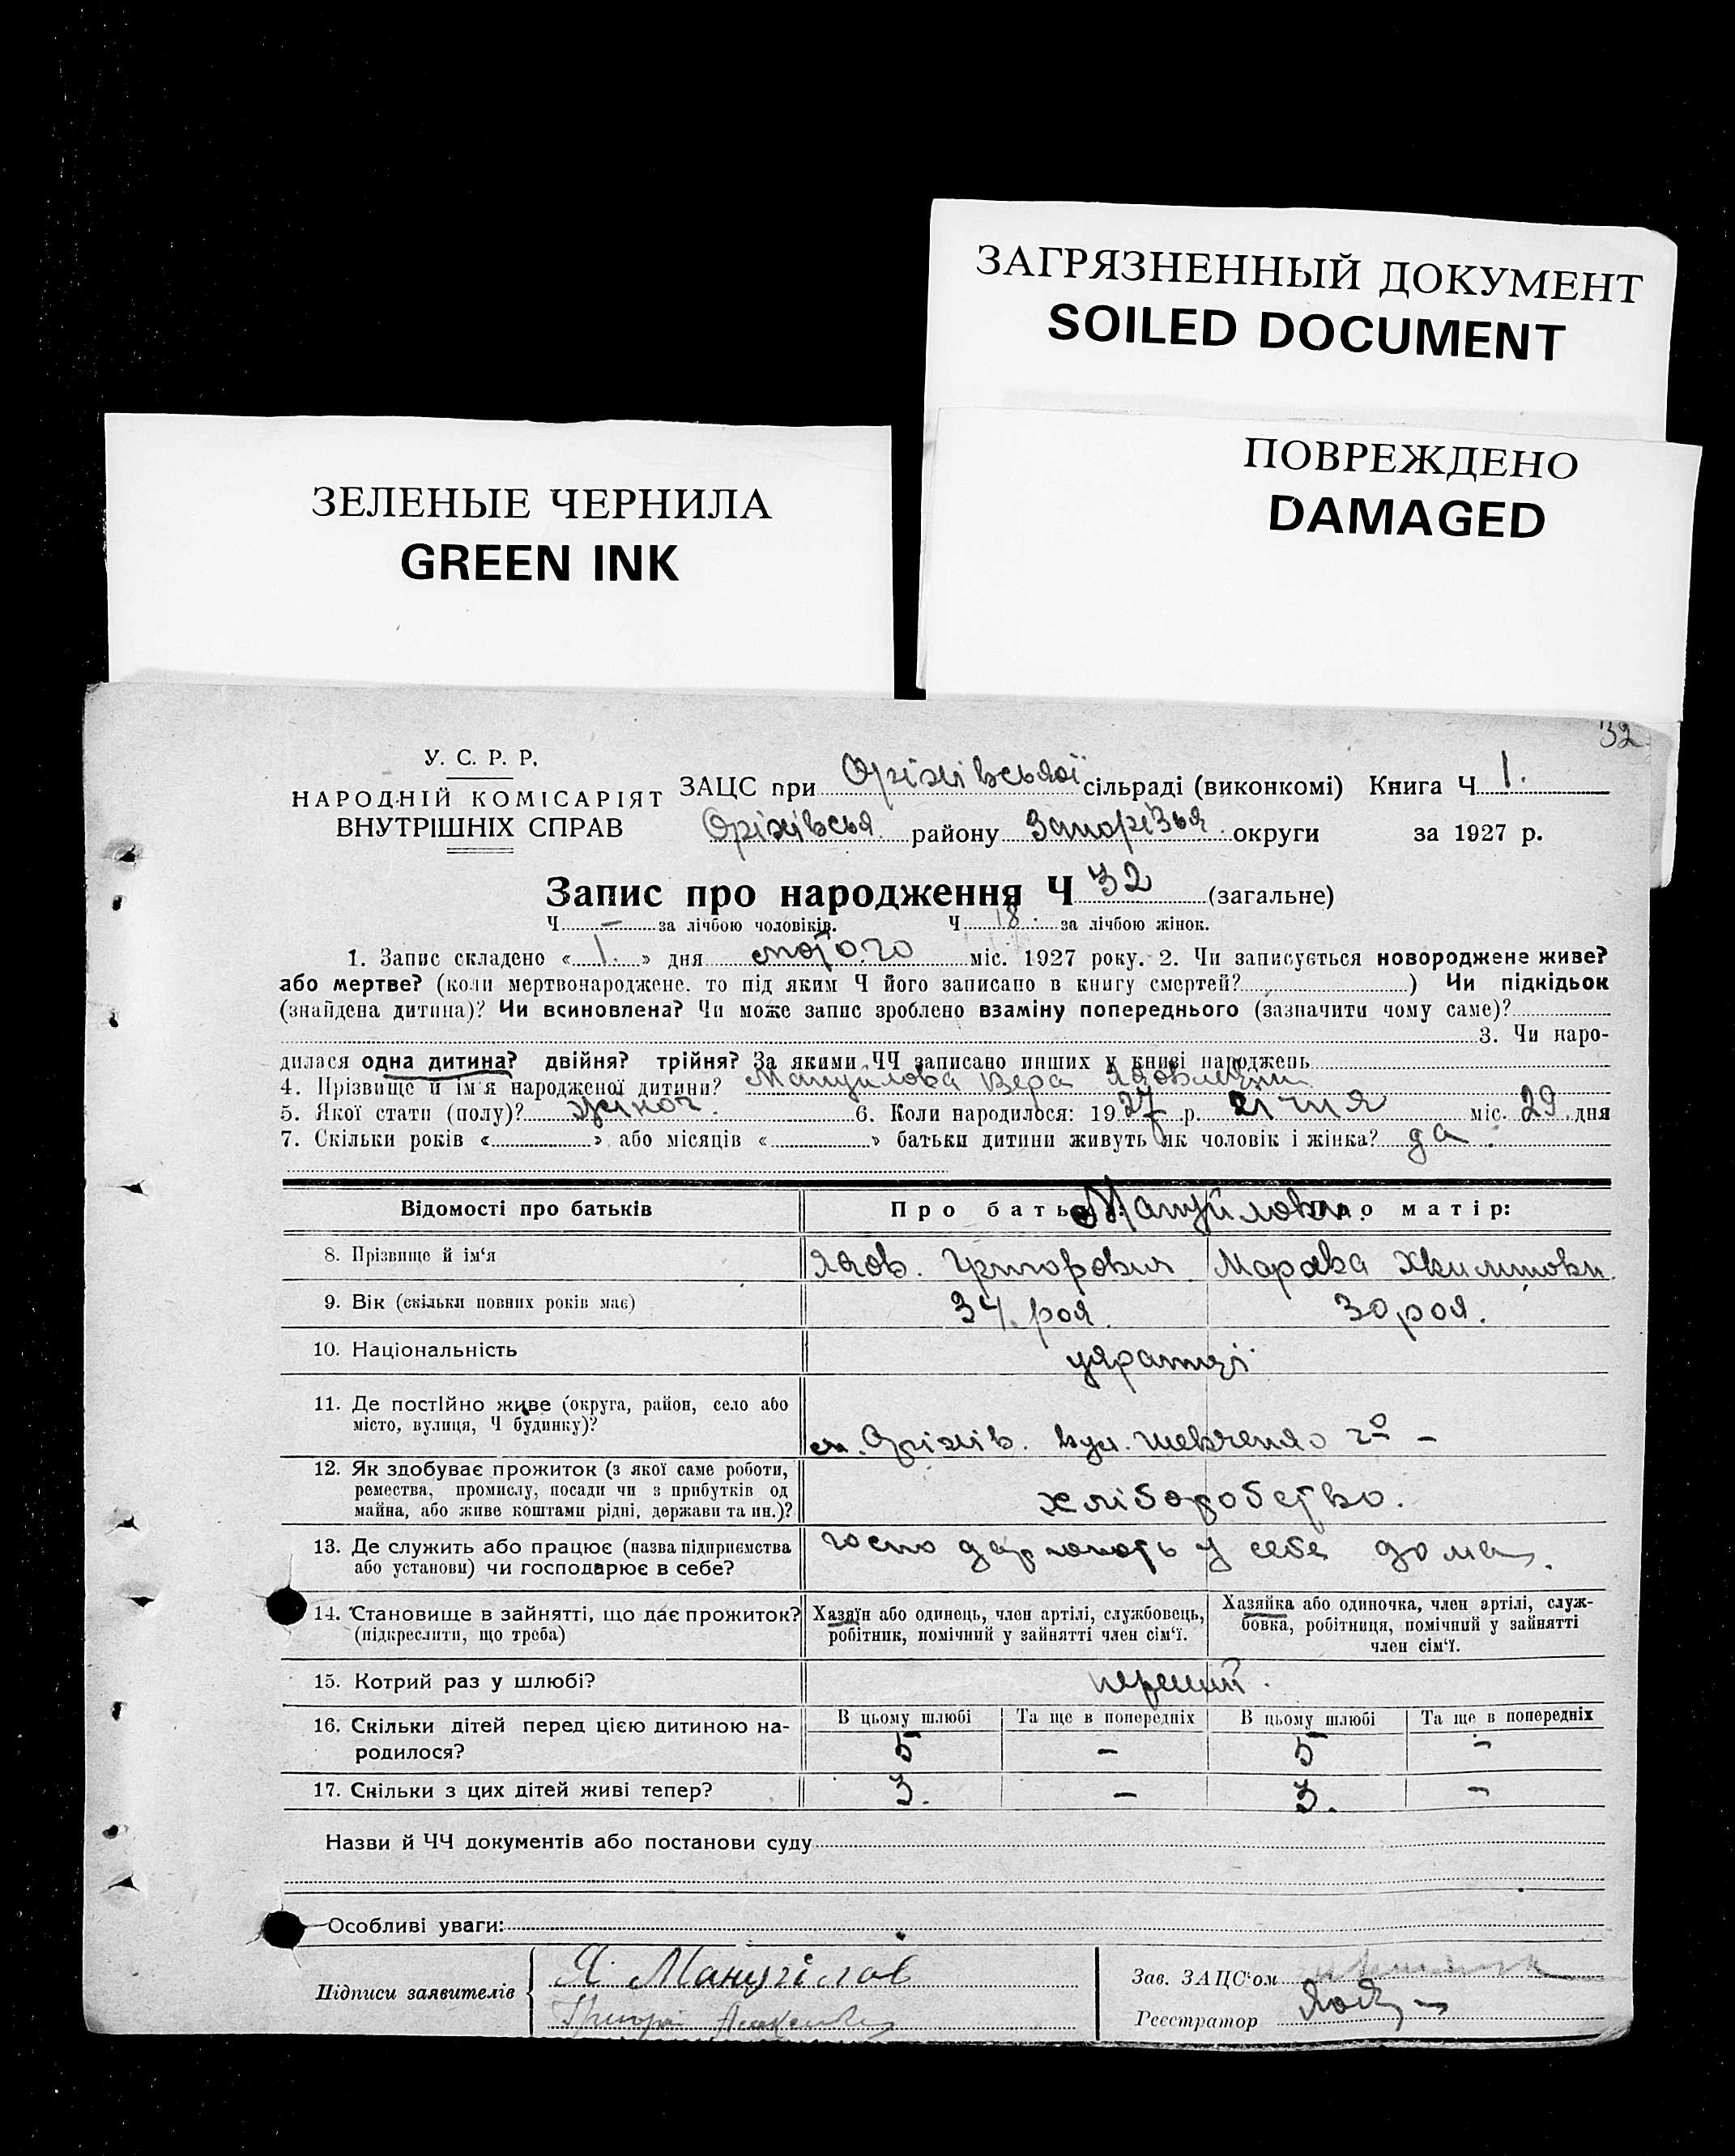 ЗАГРЯЗНЕННЫЙ ДОКУМЕНТ
SOILED DOCUMENT
ПОВРЕЖДЕНО
DAMAGED
ЗЕЛЕНЫЕ ЧЕРНИЛА
GREEN INK
32
У. С. Р. Р.
НАРОДНІЙ КОМІСАРІЯТ
ВНУТРІШНІХ СПРАВ
ЗАЦС при Оріхівській сільраді (виконкомі) Книга Ч 1.
Оріхівськ району Запоріжья округи за 1927 р.
Запис про народження Ч 32 (загальне)
Ч — за лічбою чоловіків. Ч 18. за лічбою жінок.
1. Запис складено « 1. » дня лютого міс. 1927 року. 2. Чи записується новороджене живе?
або мертве? (коли мертвонароджене, то під яким Ч його записано в книгу смертей? ) Чи підкідьок
(знайдена дитина)? Чи всиновлена? Чи може запис зроблено взаміну попереднього (зазначити чому саме)?
3. Чи наро-
дилася одна дитина? двійня? трійня? За якими ЧЧ записано инших у книзі народжень
4. Прізвище й ім'я народженої дитини? Мануйлова Вера
5. Якої стати (полу)? жіноч. 6. Коли народилося: 1927 р. січня міс. 29 дня
7. Скільки років « » або місяців « » батьки дитини живуть як чоловік і жінка? да.
Відомості про батьків
Про батька: Мануйлови. Про матір:
8. Прізвище й ім'я
Яков. Григорович Марфа
9. Вік (скільки повних років має)
34. рок. 30 рок.
10. Національність
украінці
11. Де постійно живе (округа, район, село або
місто, вулиця, Ч будинку)?
м. Оріхів. вул. Шевченко —
12. Як здобуває прожиток (з якої саме роботи,
ремества, промислу, посади чи з прибутків од
майна, або живе коштами рідні, держави та ин.)?
хліборобство.
13. Де служить або працює (назва підприємства
або установи) чи господарює в себе?
господарюють у себе дома.
14. Становище в зайнятті, що дає прожиток?
(підкреслити, що треба)
Хазяїн або одинець, член артілі, службовець,
робітник, помічний у зайнятті член сім'ї.
Хазяйка або одиночка, член артілі, служ-
бовка, робітниця, помічний у зайнятті
член сім'ї.
15. Котрий раз у шлюбі?
перший.
16. Скільки дітей перед цією дитиною на-
родилося?
В цьому шлюбі Та ще в попередніх В цьому шлюбі Та ще в попередніх
5 — 5 —
17. Скільки з цих дітей живі тепер?
3. — 3. —
Назви й ЧЧ документів або постанови суду
Особливі уваги:
Підписи заявителів
Я Мануйлов
Зав. ЗАЦС'ом
Реєстратор